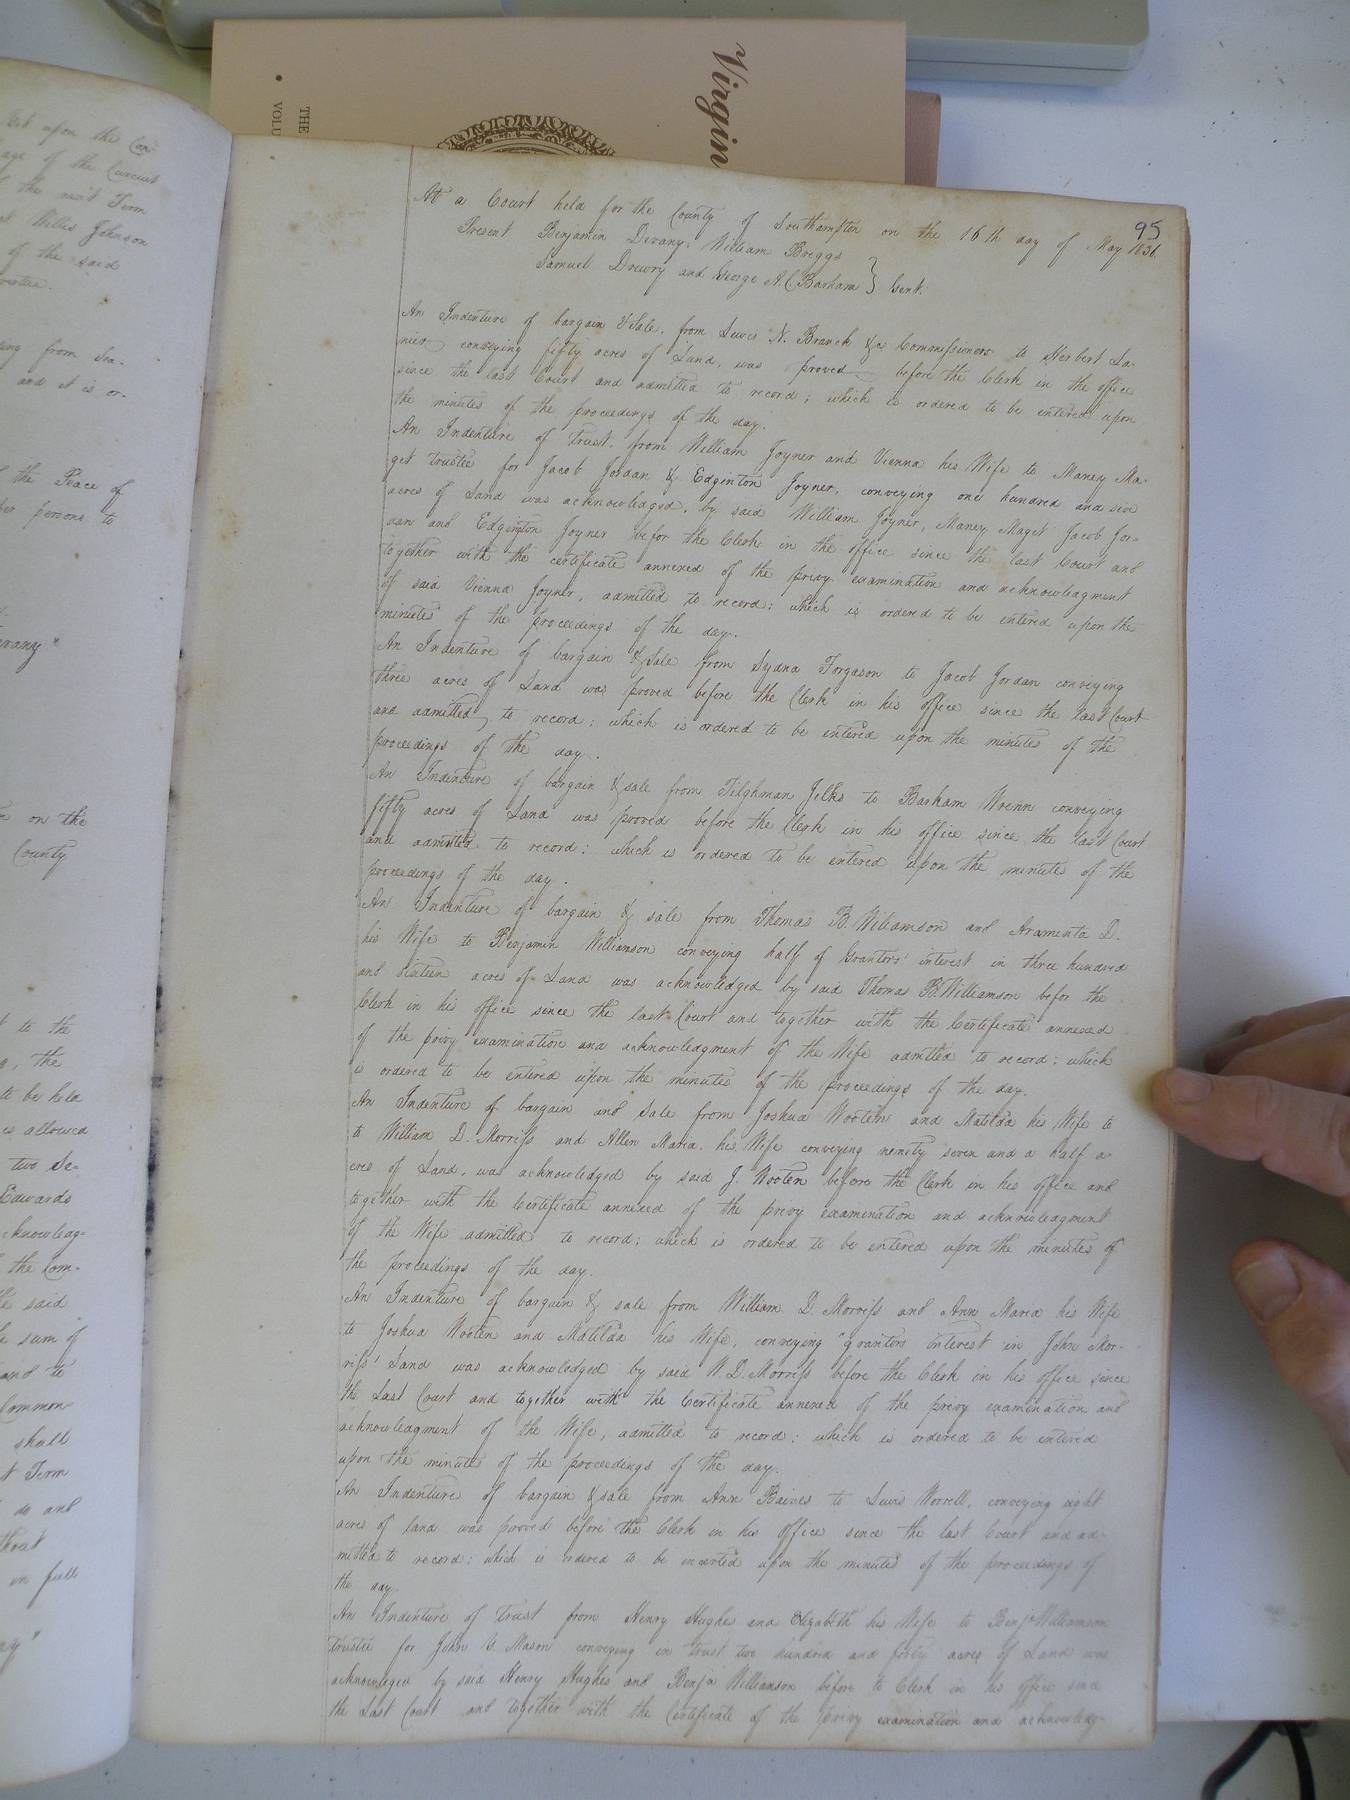 Virgin
THE
VOLU
95
At a Court held for the County of Southampton on the 16th day of May 1831.
Present Benjamin Devany, William Briggs
Samuel Drewry and George A. C. Barham } Gent.
An Indenture of bargain & Sale, from Lewis N. Branch &c Commissioners to Herbert La-
nier conveying fifty acres of Land, was proved before the Clerk in the office
since the last Court and admitted to record; which is ordered to be entered upon
the minutes of the proceedings of the day.
An Indenture of trust, from William Joyner and Vienna his Wife to Maney Ma-
get trustee for Jacob Jordan & Edginton Joyner, conveying one hundred and six
acres of Land was acknowledged, by said William Joyner, Maney Maget Jacob Jor-
dan and Edgington Joyner befor the Clerk in the office since the last Court and
together with the certificate annexed of the privy examination and acknowlagment
of said Vienna Joyner, admitted to record: which is ordered to be entered upon the
minutes of the proceedings of the day.
An Indenture of bargain & Sale from Sydna Forgason to Jacob Jordan conveying
three acres of Land was proved before the Clerk in his office since the last Court
and admitted to record; which is ordered to be entered upon the minutes of the
proceedings of the day.
An Indenture of bargain & sale from Tilghman Jelks to Barham Wrenn conveying
fifty acres of Land was proved before the Clerk in his office since the last Court
and admitted to record: which is ordered to be entered upon the minutes of the
proceedings of the day.
An Indenture of bargain & sale from Thomas B. Williamson and Araminta D.
his Wife to Benjamin Williamson conveying half of Grantors' interest in three hundred
and sixteen acres of Land was acknowledged by said Thomas B. Williamson befor the
Clerk in his office since the last Court and together with the Certificate annexed
of the privy examination and acknowledgment of the Wife admitted to record; which
is ordered to be entered upon the minutes of the proceedings of the day.
An Indenture of bargain and Sale from Joshua Wooten and Matilda his Wife to
to William D. Morriss and Allen Maria his Wife conveying ninety seven and a half a-
cres of Land, was acknowledged by said J. Wooten before the Clerk in his office and
together with the Certificate annexed of the privy examination and acknowleagment
of the Wife admitted to record; which is ordered to be entered upon the minutes of
the proceedings of the day.
An Indenture of bargain & sale from William D. Morriss and Ann Maria his Wife
to Joshua Wooten and Matilda his Wife, conveying "grantors interest in John Mor-
riss' Land was acknowledged by said W. D. Morriss before the Clerk in his office since
the Last Court and together with the Certificate annexed of the privy examination and
acknowledgment of the Wife, admitted to record: which is ordered to be entered
upon the minutes of the proceedings of the day.
An Indenture of bargain & sale from Ann Baines to Lewis Worrell, conveying eight
acres of land was proved before the Clerk in his office since the last Court and ad-
mitted to record: which is ordered to be inserted upon the minutes of the proceedings of
the day.
An Indenture of trust from Henry Hughes and Elizabeth his Wife to Benja Williamson
trustee for John Mason conveying in trust two hundred and forty acres of Land was
acknowleged by said Henry Hughes and Benja Williamson before to Clerk in his office since
the Last Court and together with the Certificate of the privy examination and acknowledg-